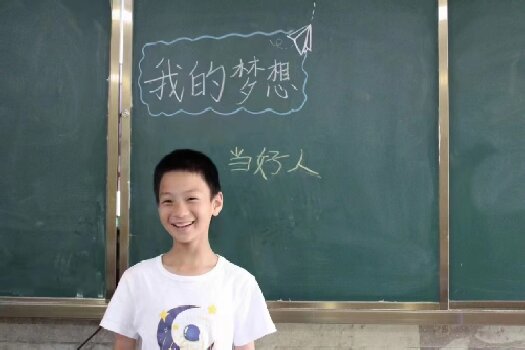 我的梦想
当好人